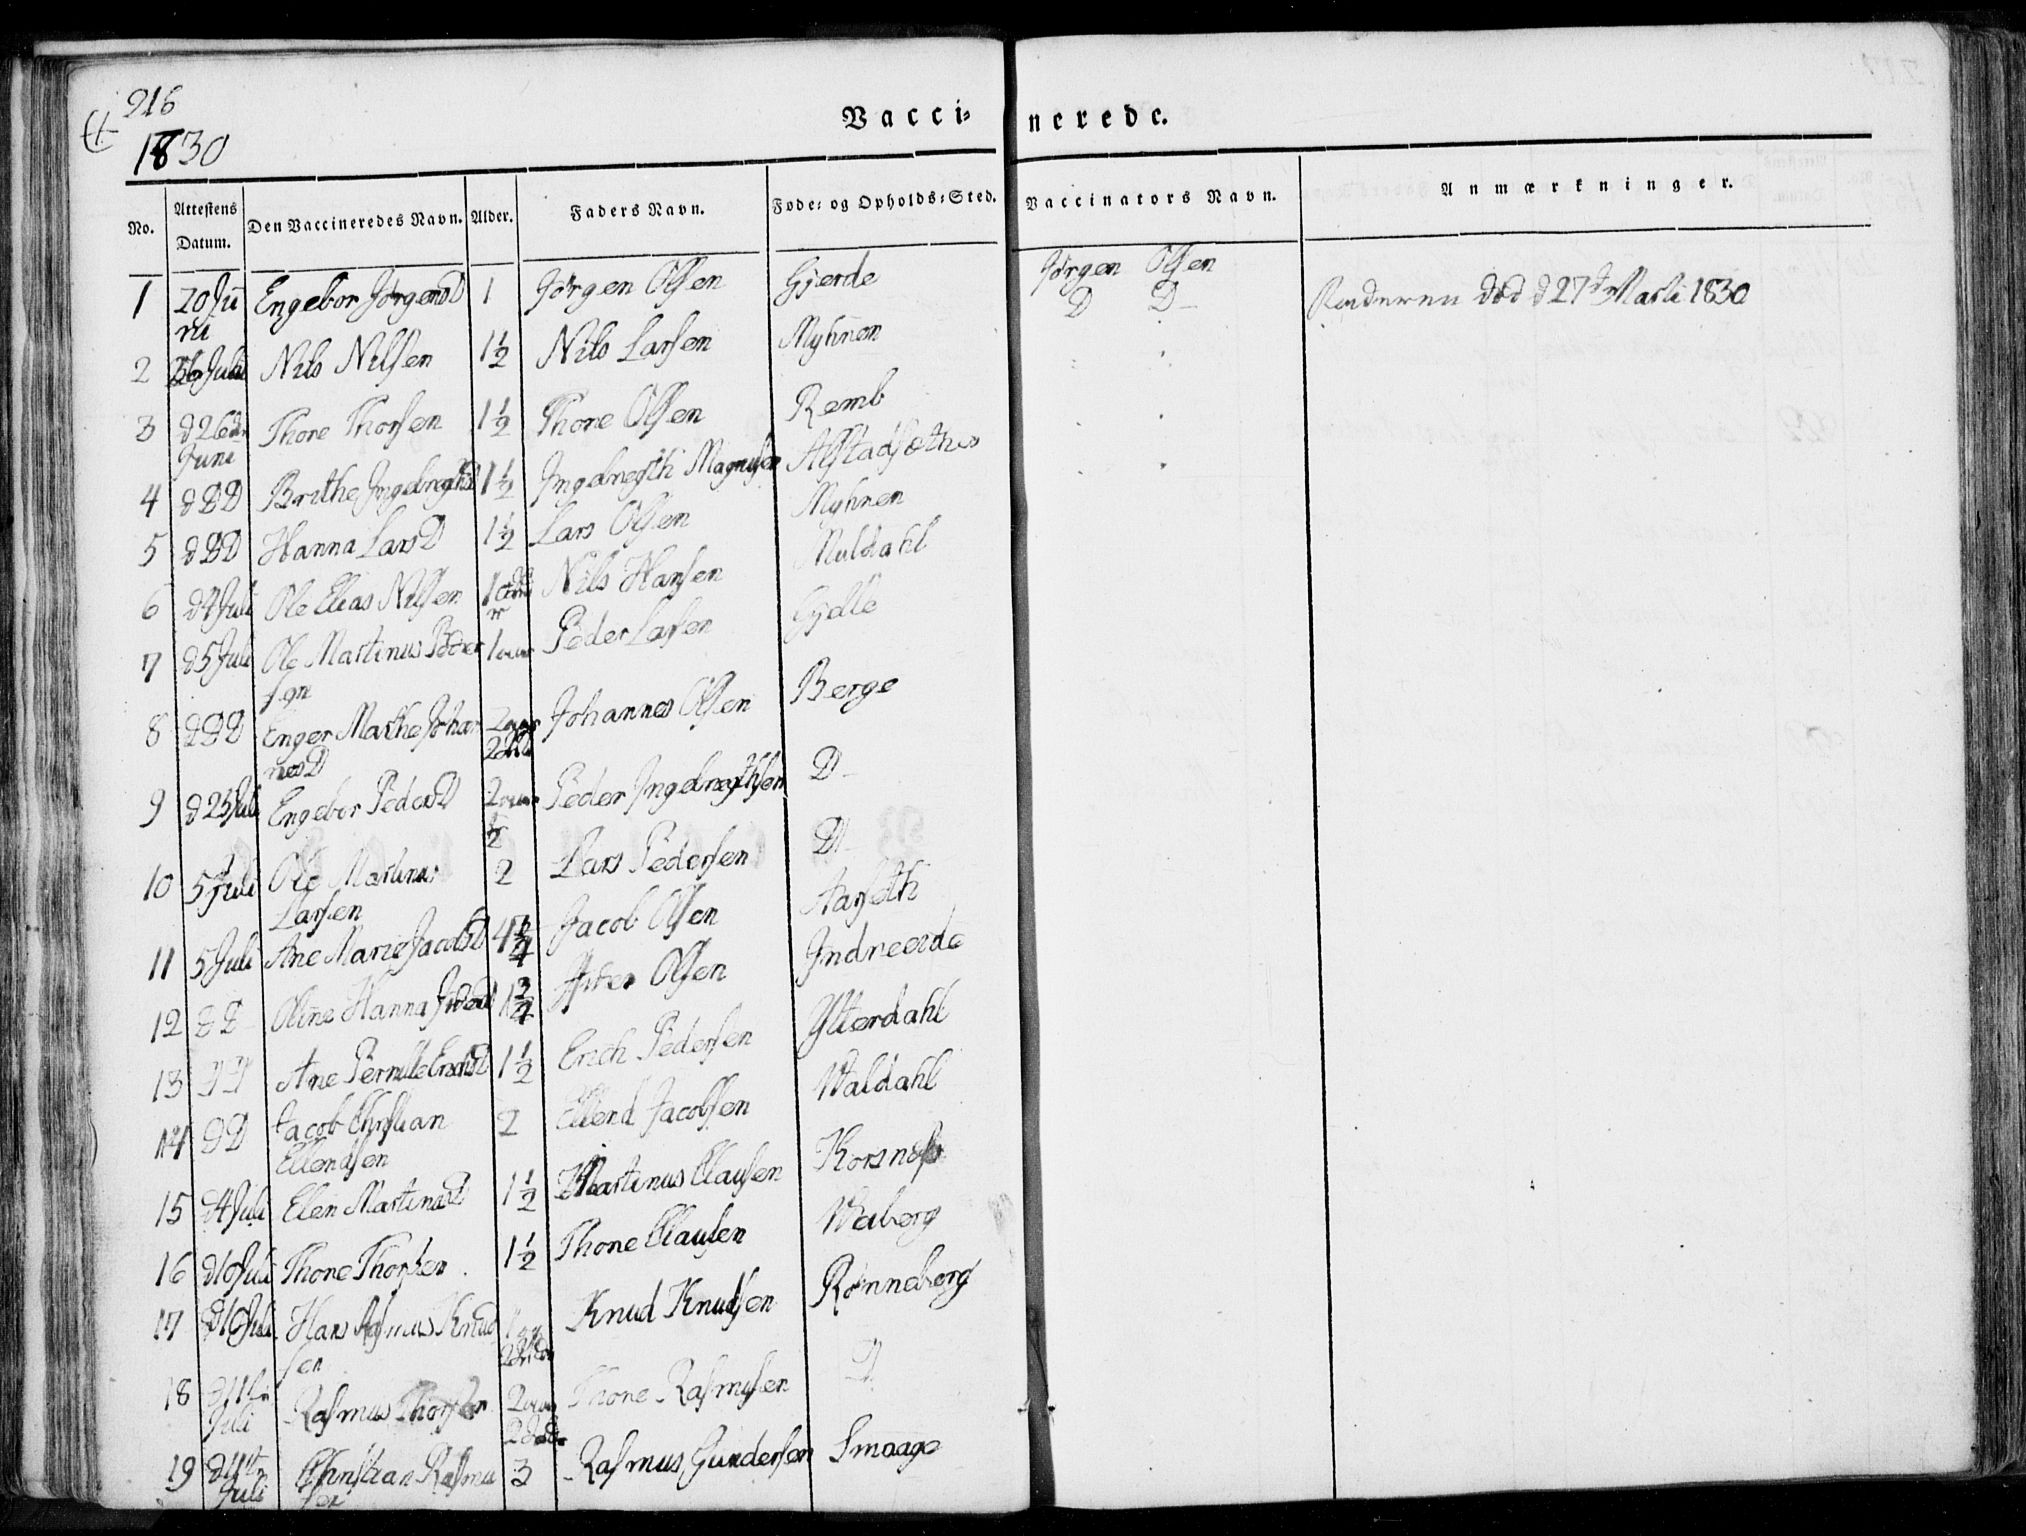 216
1830
Vaccinerede.
No. Attestens Datum. Den Vaccineredes Navn. Alder. Faders Navn. Føde- og Opholds-Sted. Vaccinators Navn. Anmærkninger.
1 20 Ju Engebor JørgensD 1 Jørgen Olsen Gjerde Jørgen Olsen
ni D D- død d 27de Marti 1830
2 26 Juli Nils Nilsen 1½ Nils Larsen Myhnen
3 d 26de Thore Thorsen 1½ Thore Olsen Remb
Juni
4 d D D Brithe 1½ Magnusen
5 d D D Hanna LarsD 1½ Lars Olsen Myhnen
6 d4 Juli Ole Elias Nilsen 1 Nils Hansen Muldahl
7 d5 Juli Ole Martinus Peder 1 Peder Larsen Gjelle
sen
8 d D D Enger Marthe Johan 2 Johannes Olsen Berge
nesD
9 d 23 Juli Engebor PedersD 2 Peder D-
½
10 5 Juli Ole Martinus 2 Lars Pedersen D-
Larsen
11 5 Juli Ane Marie JacobsD Jacob Olsen
12 D D Oline Hanna Olsen Indreeide
13 D D Ane Pernille 1½ Erich Pedersen Ytterdahl
14 D D Jacob Christian 2 Ellend Jacobsen Waldahl
Ellendsen
15 d4 Juli Elen MartinusD 1½ Martinus Clausen Korsnes
16 d10 Juli Thore Thorsen 1½ Thore Clausen
17 d10 Juli Hans Rasmus Knud 1 Knud Knudsen Rønneberg
sen
18 d 11te Rasmus Thorsen 2 Thore Rasmusen D
Juli
19 d 11te Christian Rasmu 3 Rasmus Gundersen Smaage
Juli sen